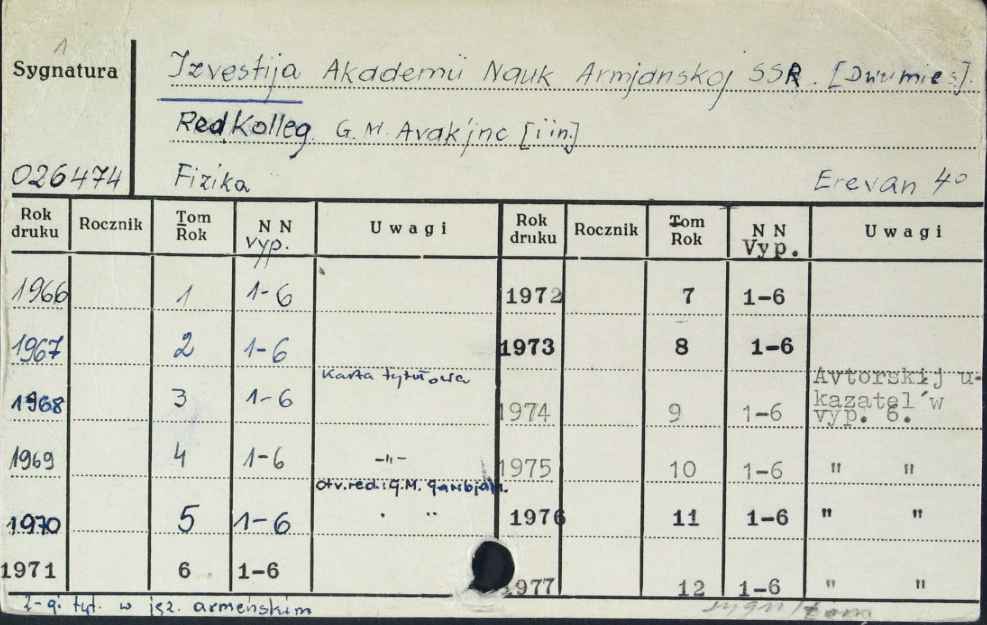 1
Sygnatura
Izvestija Akademii Nauk Armjanskoj SSR. [Dwumies].
RedKolleg. G. M. Avakjnc [i in.]
026474
Fizika
Erevan 4°
Rok druku Rocznik Tom Rok NN vyp. Uwagi Rok druku Rocznik Tom Rok NN Vyp. Uwagi
1966 1 1-6 1972 7 1-6
1967 2 1-6 1973 8 1-6
1968 3 1-6 Karta tytułowa 1974 9 1-6 Avtorskij u-
kazatel´w
vyp. 6.
1969 4 1-6 -"- 1975 10 1-6 " "
otv. red: G.M.
1970 5 1-6 " 1976 11 1-6 " "
1971 6 1-6 1977 12 1-6 " "
2-gi tyt. w jęz. armeńskim